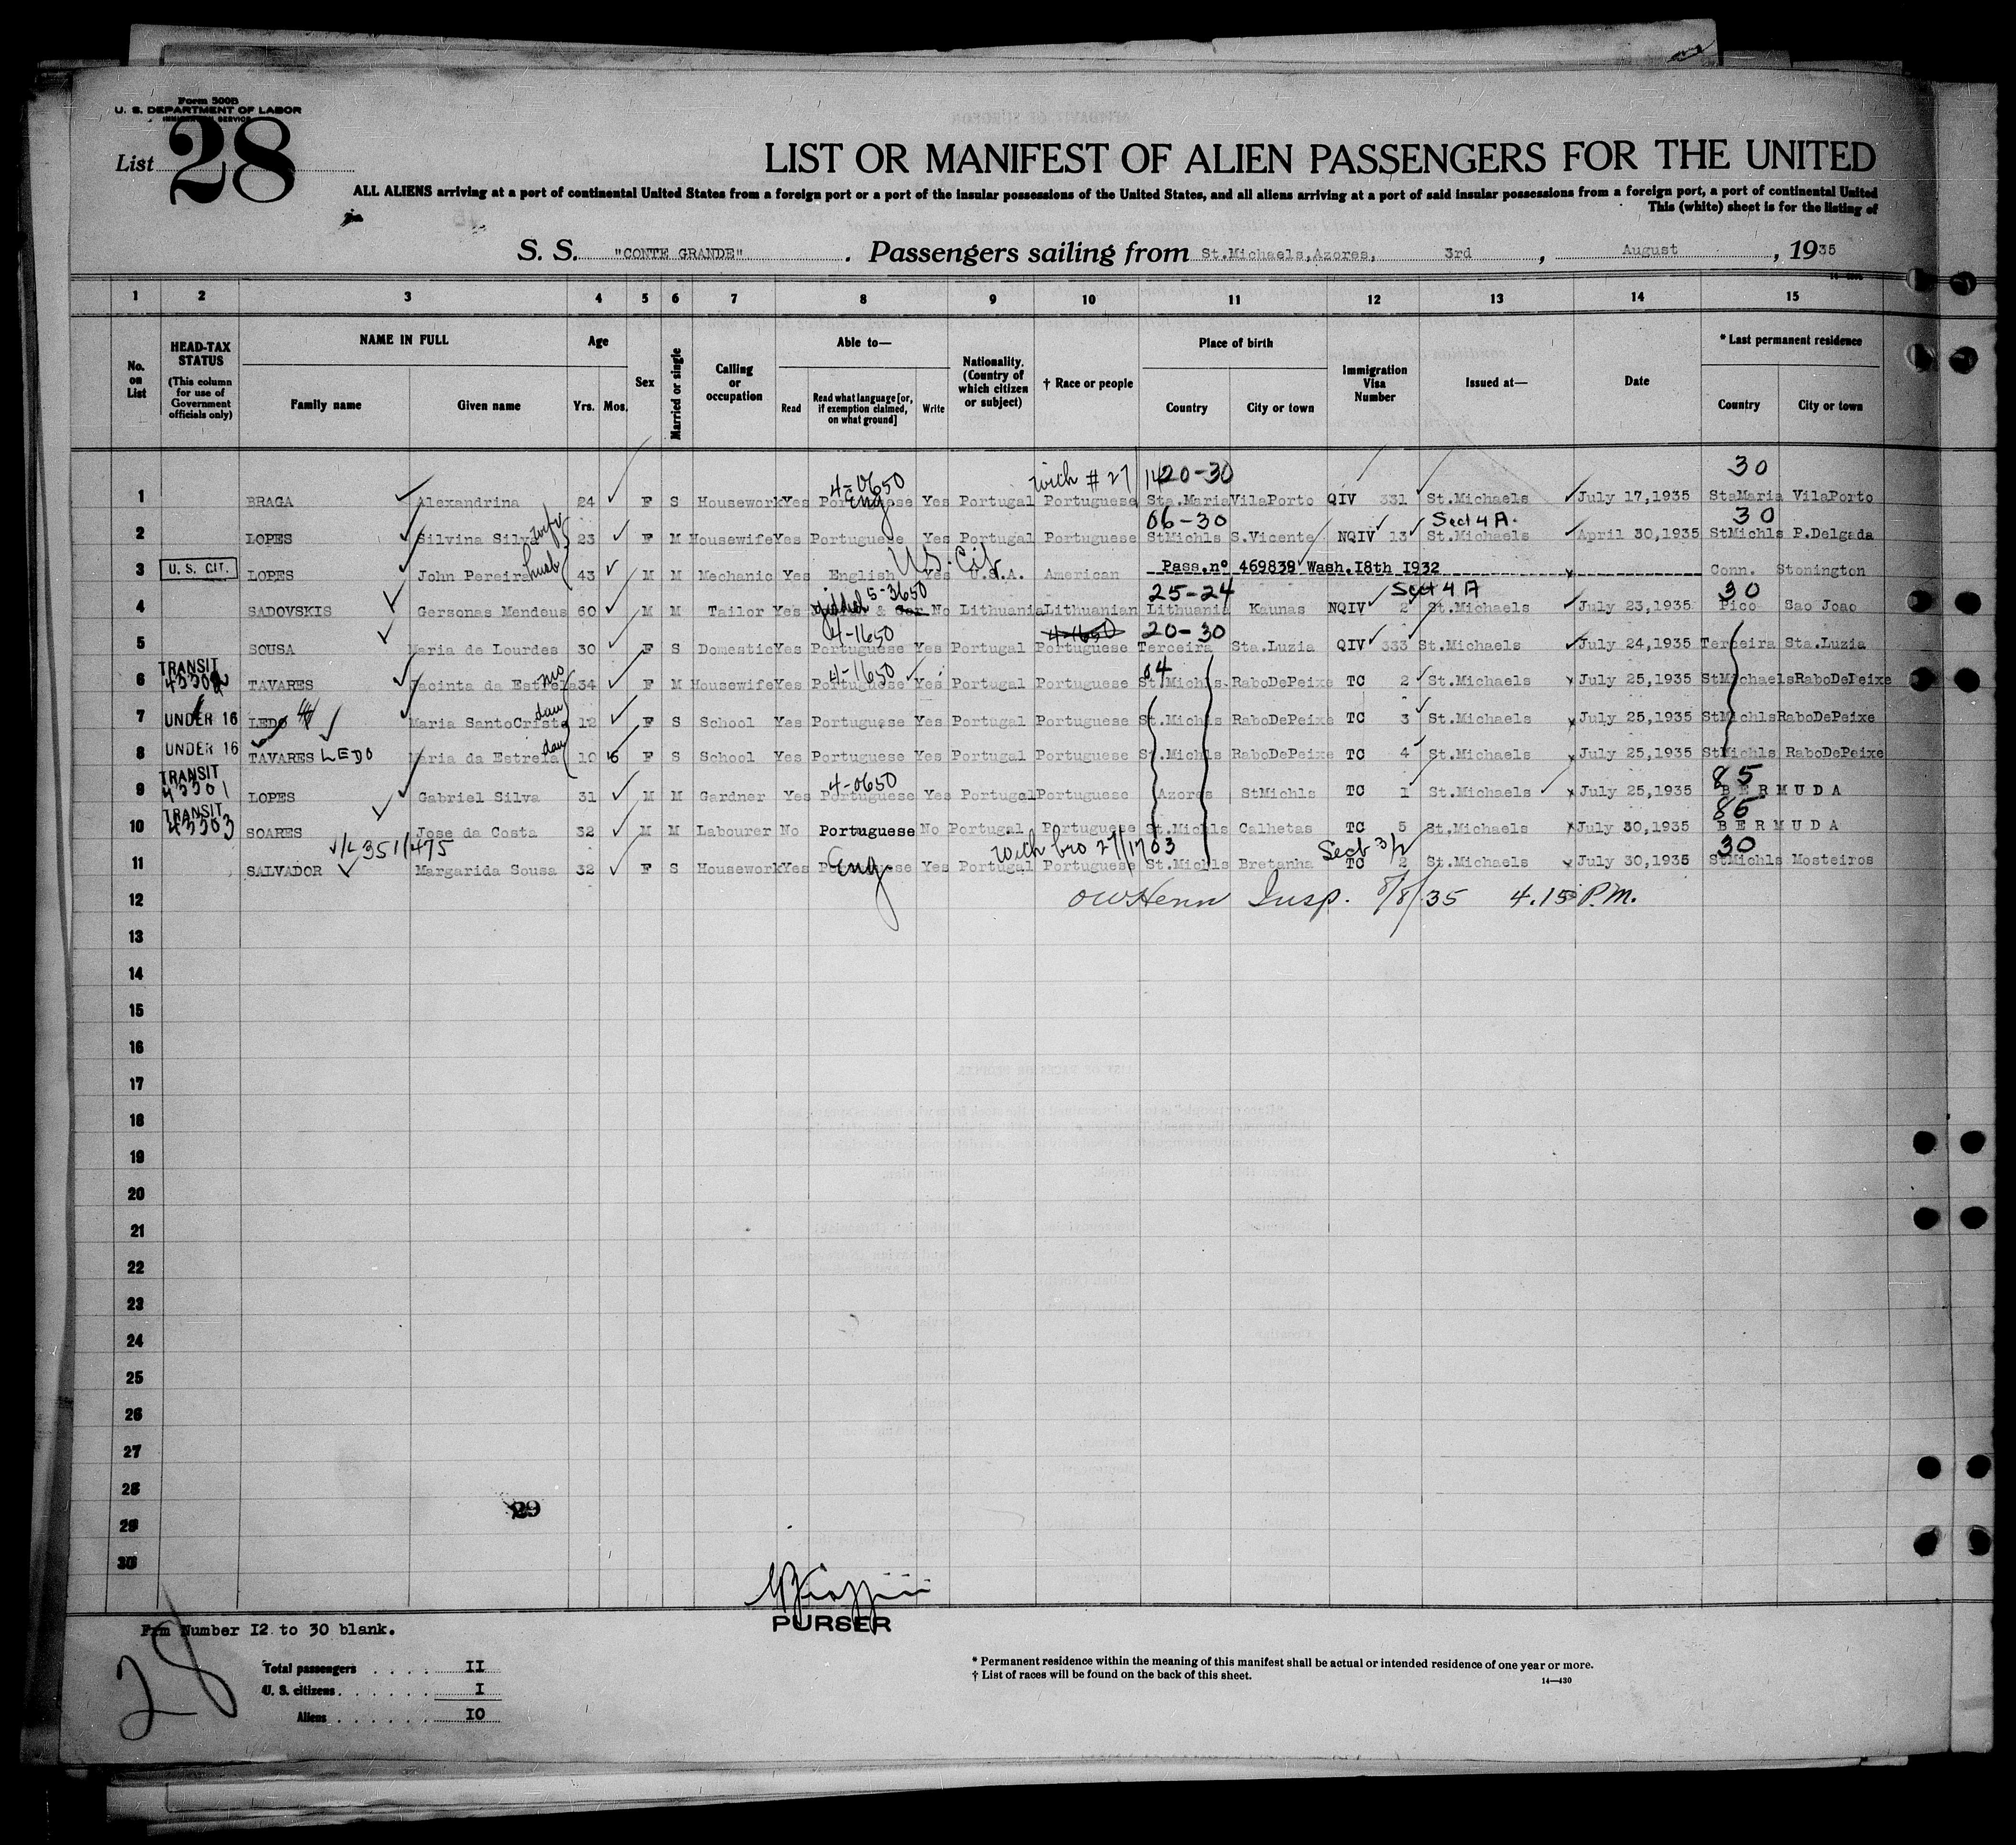 Form 500B
U. S. DEPARTMENT OF LABOR
IMMIGRATION SERVICE
List 28
LIST OR MANIFEST OF ALIEN PASSENGERS FOR THE UNITED
ALL ALIENS arriving at a port of continental United States from a foreign port or a port of the insular possessions of the United States, and all aliens arriving at a port of said insular possessions from a foreign port, a port of continental United
This (white) sheet is for the listing of
S. S. "CONTE GRANDE". Passengers sailing from St.Michaels,Azores, 3rd, August, 1935
1 2 3 4 5 6 7 8 9 10 11 12 13 14 15
No. on List
HEAD-TAX STATUS (This column for use of Government officials only)
NAME IN FULL Family name Given name
Age Yrs. Mos.
Sex
Married or single
Calling or occupation
Able to— Read Read what language [or, if exemption claimed, on what ground] Write
Nationality. (Country of which citizen or subject)
† Race or people
Place of birth Country City or town
Immigration Visa Number
Issued at—
Date
* Last permanent residence Country City or town
4-0650 with # 27/ 1420-30 30
1 BRAGA Alexandrina 24 F S Housework Yes Portuguese Eng Yes Portugal Portuguese Sta.Maria VilaPorto QIV 331 St.Michaels July 17,1935 StaMaria VilaPorto
06-30 Sect 4 A. 30
2 LOPES Silvina Silva wife 23 F M Housewife Yes Portuguese Yes Portugal Portuguese StMichls S.Vicente NQIV 13 St.Michaels April 30,1935 StMichls P.Delgada
U.S. Cit
3 U. S. CIT. LOPES John Pereira husb 43 M M Mechanic Yes English Yes U.S.A. American Pass.nº 469839 Wash.18th 1932 Conn. Stonington
5-3650 25-24 Sect 4 A 30
4 SADOVSKIS Gersonas Mendeus 60 M M Tailor Yes & Ger No Lithuania Lithuanian Lithuania Kaunas NQIV 2 St.Michaels July 23,1935 Pico Sao Joao
4-1650 4-1650 20-30
5 SOUSA Maria de Lourdes 30 F S Domestic Yes Portuguese Yes Portugal Portuguese Terceira Sta.Luzia QIV 333 St.Michaels July 24,1935 Terceira Sta.Luzia
TRANSIT 45302 4-1650 04
6 TAVARES Jacinta da Estrela mo 34 F M Housewife Yes Portuguese Yes Portugal Portuguese St.Michls RaboDePeixe TC 2 St.Michaels July 25,1935 StMichaels RaboDePeixe
7 UNDER 16 LEDO Maria SantoCristo dau 12 F S School Yes Portuguese Yes Portugal Portuguese St.Michls RaboDePeixe TC 3 St.Michaels July 25,1935 StMichls RaboDePeixe
8 UNDER 16 TAVARES LEDO Maria da Estrela dau 10 6 F S School Yes Portuguese Yes Portugal Portuguese St.Michls RaboDePeixe TC 4 St.Michaels July 25,1935 StMichls RaboDePeixe
TRANSIT 45301 4-0650 85
9 LOPES Gabriel Silva 31 M M Gardner Yes Portuguese Yes Portugal Portuguese Azores StMichls TC 1 St.Michaels July 25,1935 BERMUDA
TRANSIT 45303 85
10 SOARES Jose da Costa 32 M M Labourer No Portuguese No Portugal Portuguese St.Michls Calhetas TC 5 St.Michaels July 30,1935 BERMUDA
V/L 351/475 with bro 27/17 03 Sect 3/2 30
11 SALVADOR Margarida Sousa 32 F S Housework Yes Portuguese Eng Yes Portugal Portuguese St.Michls Bretanha TC 2 St.Michaels July 30,1935 StMichls Mosteiros
12 Insp. 8/8/35 4.15 P.M.
13
14
15
16
17
18
19
20
21
22
23
24
25
26
27
28
29
29
30
PURSER
Frm Number 12 to 30 blank.
28
Total passengers II
U. S. citizens I
Aliens IO
* Permanent residence within the meaning of this manifest shall be actual or intended residence of one year or more.
† List of races will be found on the back of this sheet.
14—430